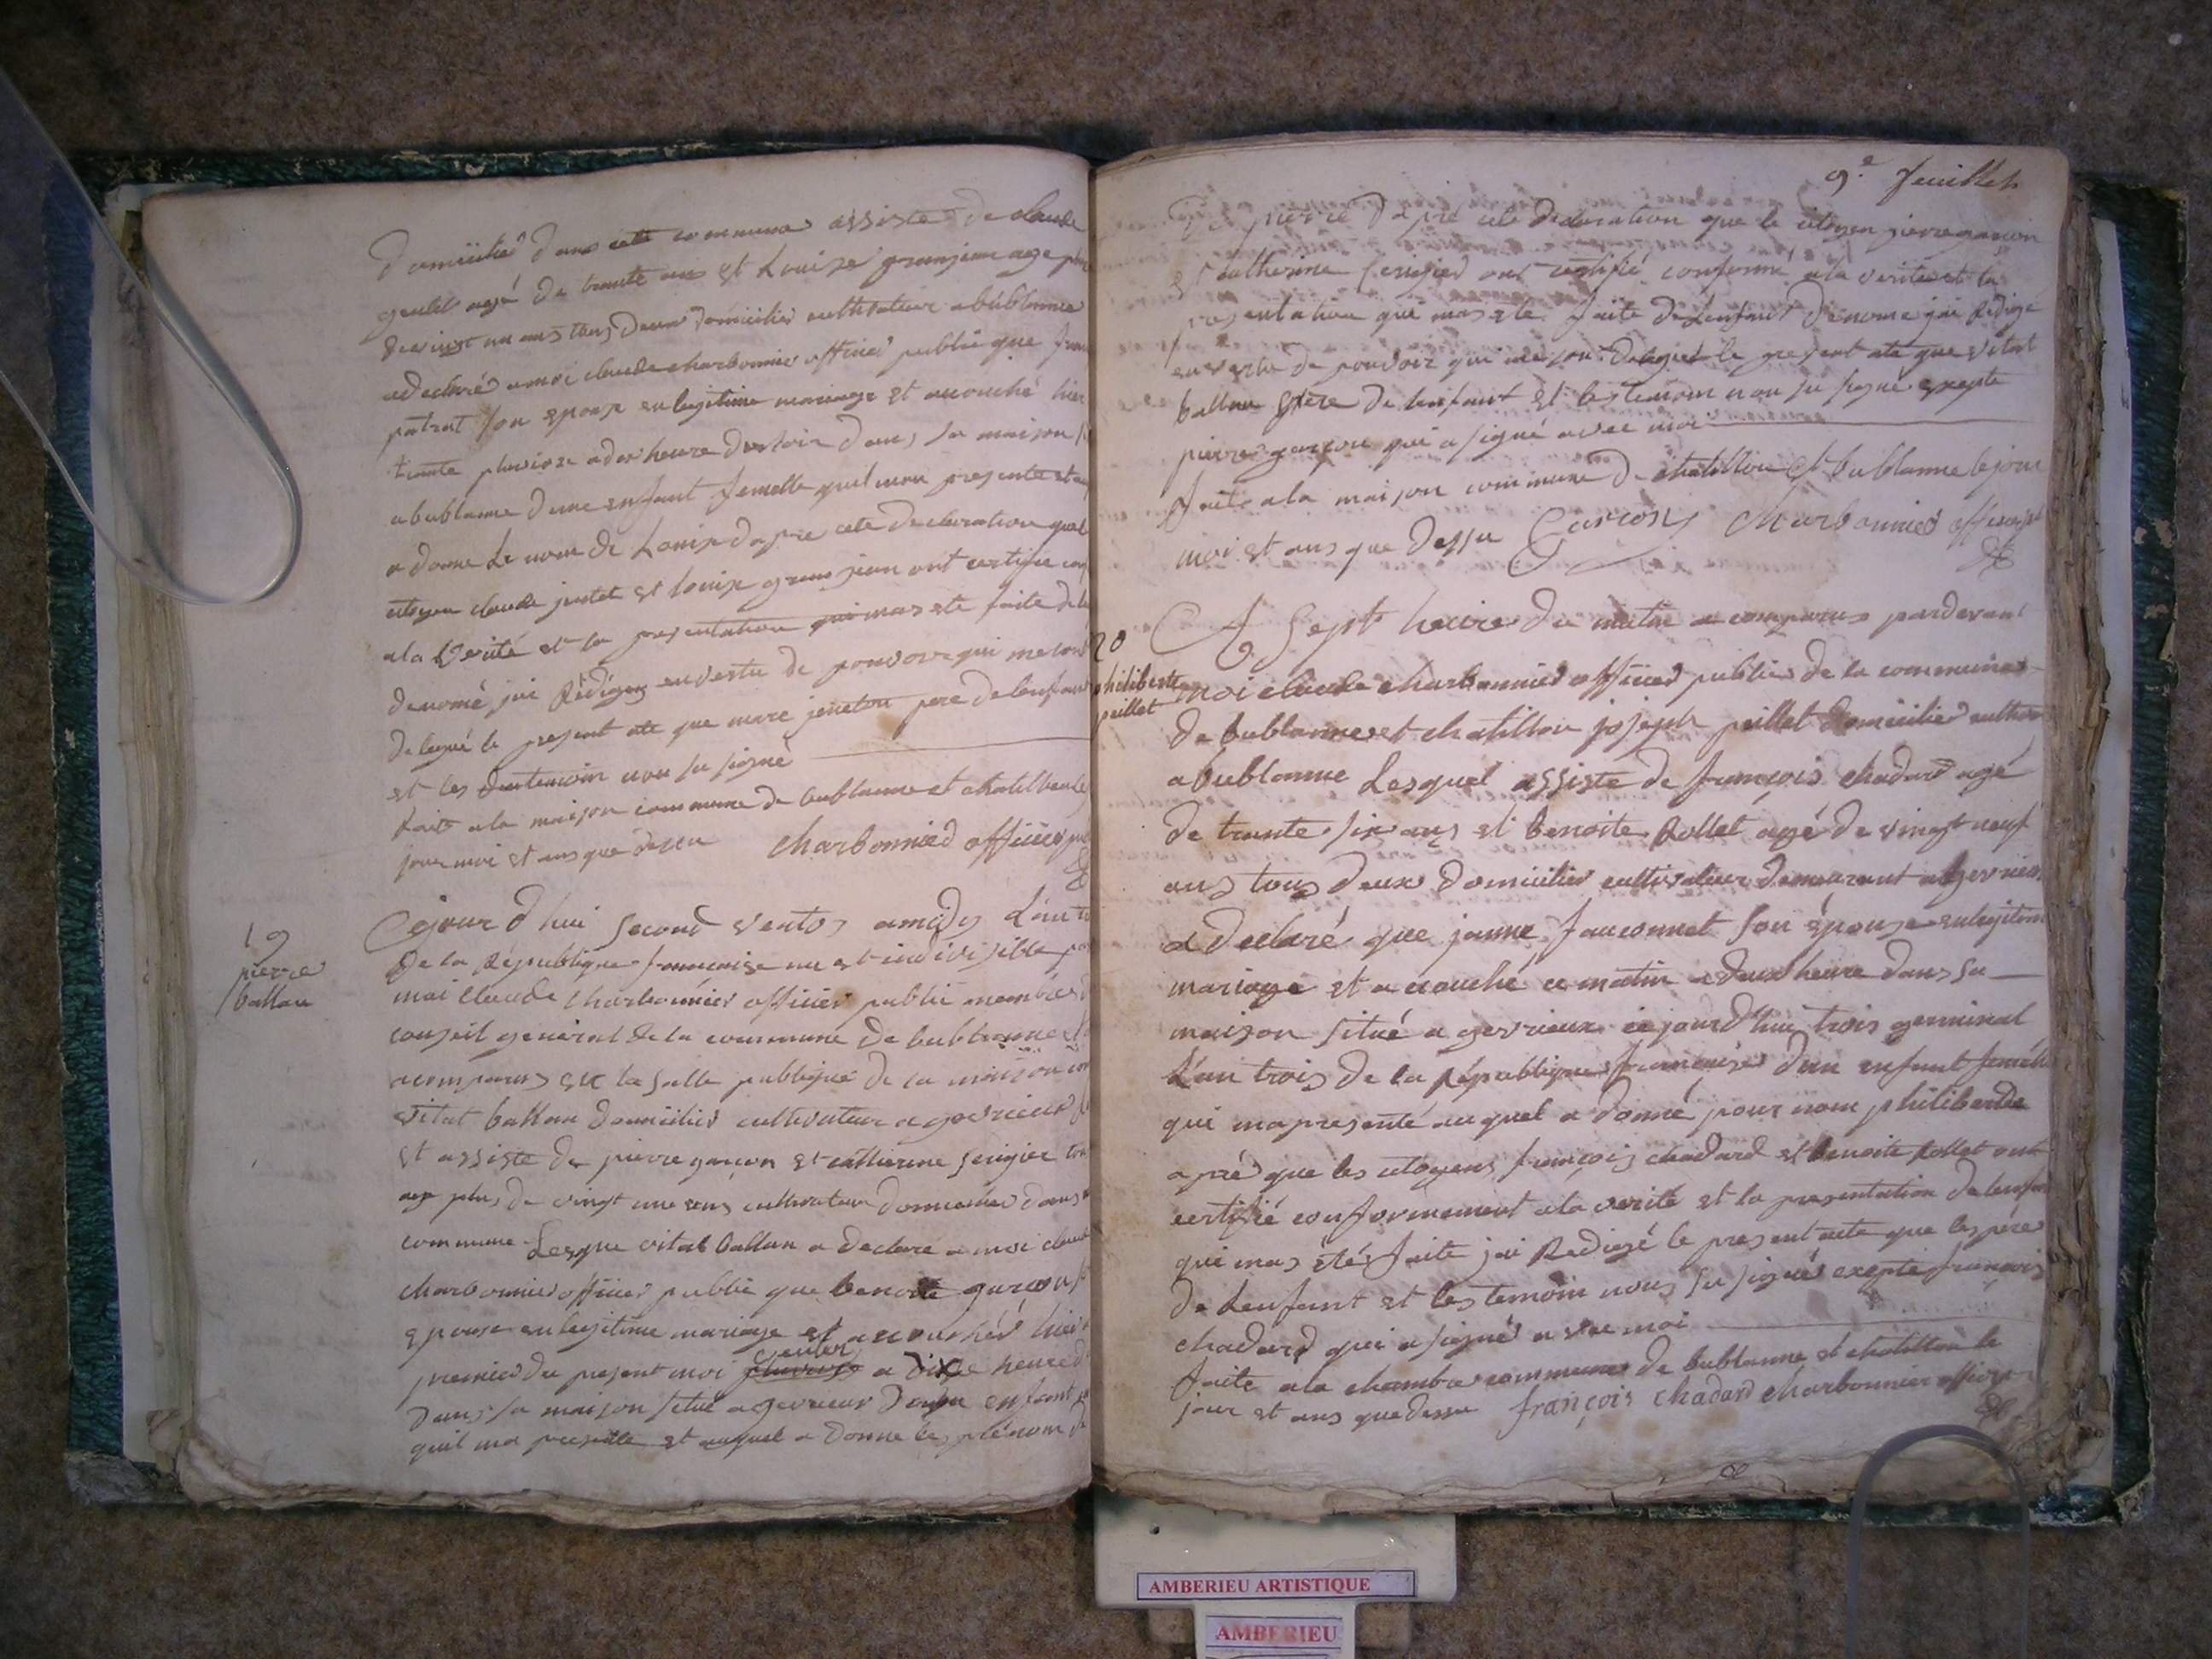 domicilié dans cette commune assiste de claude
agé de trante ans et Louise granjean age
vingt un ans tous deux domicilier cultivateur a bublanne
a declaré a moi claude charbonnier officier public que
son epouse en legitime mariage et acouché hier
trante pluviose a dix heure du soir dans sa maison
a bublanne dune enfant femelle quil mon presente et
a donne Le nom de Louise dapre cete declaration que
citoyen claude et louise gran jean ont certifie
a la Verité et la presentation qui mas ete faite de
denomé jai Rédigez en vertu de pouvoir qui me sont
delegué le present ate que marc pere de lenfant
et les deux temoin non su signé
Fait a la maison commune de bublanne et chatillon
jour moi et ans que dessu charbonnier officier
19
pierre
ballan
Cejour d'hui second ventos a midy L'an
de la République francaise une et indivisible
moi Claude Charbonnier officier public membre
conseil general de la commune de bublanne
a comparus la salle publique de la maison
vital ballan domicilier cultivateur a gevrieux
et assiste de pierre garcon et catherine serigier
age plus de vingt une ans cultivateur domicilier dans
commune Lesque vital ballan a declaré a moi
charbonnier officier public que benoite garcon
epouse en legitime mariage et acouchér hier
premier du present moi a dixe heure
dans sa maison situé a gevrieux enfant
quil ma presente et auquel a donne les prénom
9e feuillet
De pierre dapré cete declaration que le citoyen pierre garcon
et catherine serigier ont certifié conforme a la verité et la
presentation qui mas ete faite de Lenfant dénome jai Redige
en vertu de pouvoir qui me sont delegué le present ate que vital
ballan père de lenfant et les temoin non su signé exepte
pierre garcon qui a signé avec moi
Fait a la maison commune de chatillon et bublanne le jour
moi et ans que dessu Garcon Charbonnier officier
20
philiberte
peillet
A Sept heure du matin a comparus pardevant
moi claude charbonnier officier public de la commune
de bublanne et chatillon joseph peillet domicilier
a bublanne Lesquel assiste de françois chadard agé
de trante six ans et benoite Rollet agé de vingt neuf
ans tous deux domicilier cultivateur demeurant a gevrieux
a declaré que janne fauconnet son épouse en legitime
mariage et acouché ce matin a deux heure dans sa
maison situé a gevrieux cejourd'hui trois germinal
L'an trois de la République francaise dun enfant femelle
qui ma presenté auquel a donné pour nom philiberde
apré que les citoyens françois chadard et benoite Rollet ont
certifié conformement a la verité et la presentation de lenfant
qui mas été faite jai Redigé le present acte que les pére
de Lenfant et les temoin nous su signer exepte françois
chadard qui a signér avec moi
Faite a la chambre commune de bublanne et chatillon le
jour et ans que dessu françois chadard charbonnier officier
AMBERIEU ARTISTIQUE
AMBERIEU